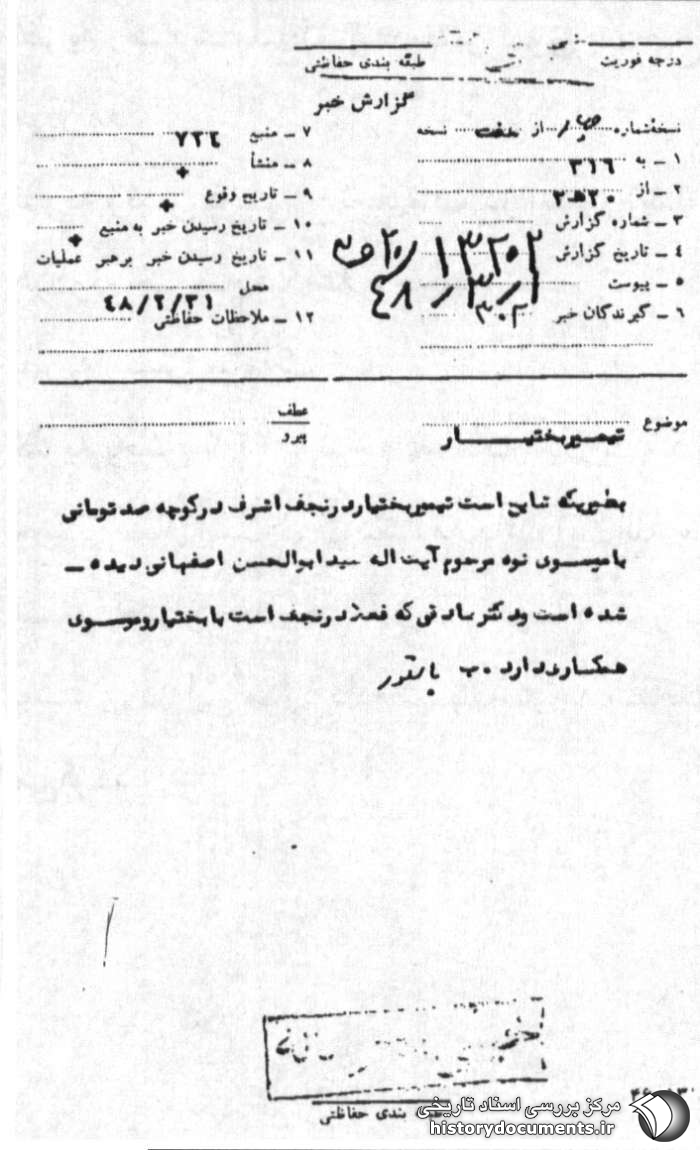 درجه فوریت
طبقه بندی حفاظتی
گزارش خبر
نسخه شماره چهار از هفت نسخه
۱ ـ به ۳۱۶
۲ ـ از ۲۰ ه ۲
۳ ـ شماره گزارش
۴ ـ تاریخ گزارش
۵ ـ پیوست
۶ ـ گیرندگان خبر
۷ ـ منبع ۷۲٤
۸ ـ منشأ +
۹ ـ تاریخ وقوع +
۱۰ ـ تاریخ رسیدن خبر به منبع +
۱۱ ـ تاریخ رسیدن خبر برهبر عملیات
محل ٤۸/۲/۳۱
۱۲ ـ ملاحظات حفاظتی
موضوع تیمسر بختیـــــار
عطف
پیرو
بطوریکه شایع است تیمسر بختیار در نجف اشرف در کوچه صد تومانی
با میسوی نوه مرحوم آیت اله سید ابوالحسن اصفهانی دیده ـ
شده است ودکتر صادقی که فعلا در نجف است با بختیار و موسوی
همکاری دارد . ب
طبقه بندی حفاظتی
مرکز بررسی اسناد تاریخی
historydocuments.ir